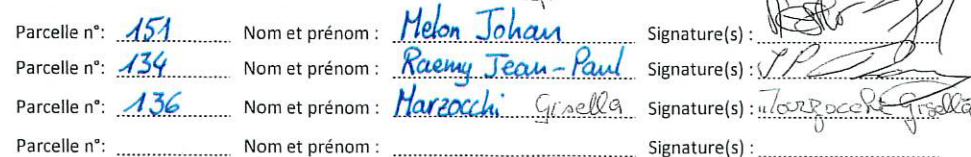 Parcelle n°: 151 Nom et prénom : Melon Johan Signature(s) :
Parcelle n°: 134 Nom et prénom : Raemy Jean-Paul Signature(s) :
Parcelle n°: 136 Nom et prénom : Marzocchi Gisella Signature(s) : Marzocchi Gisella
Parcelle n°: Nom et prénom : Signature(s) :